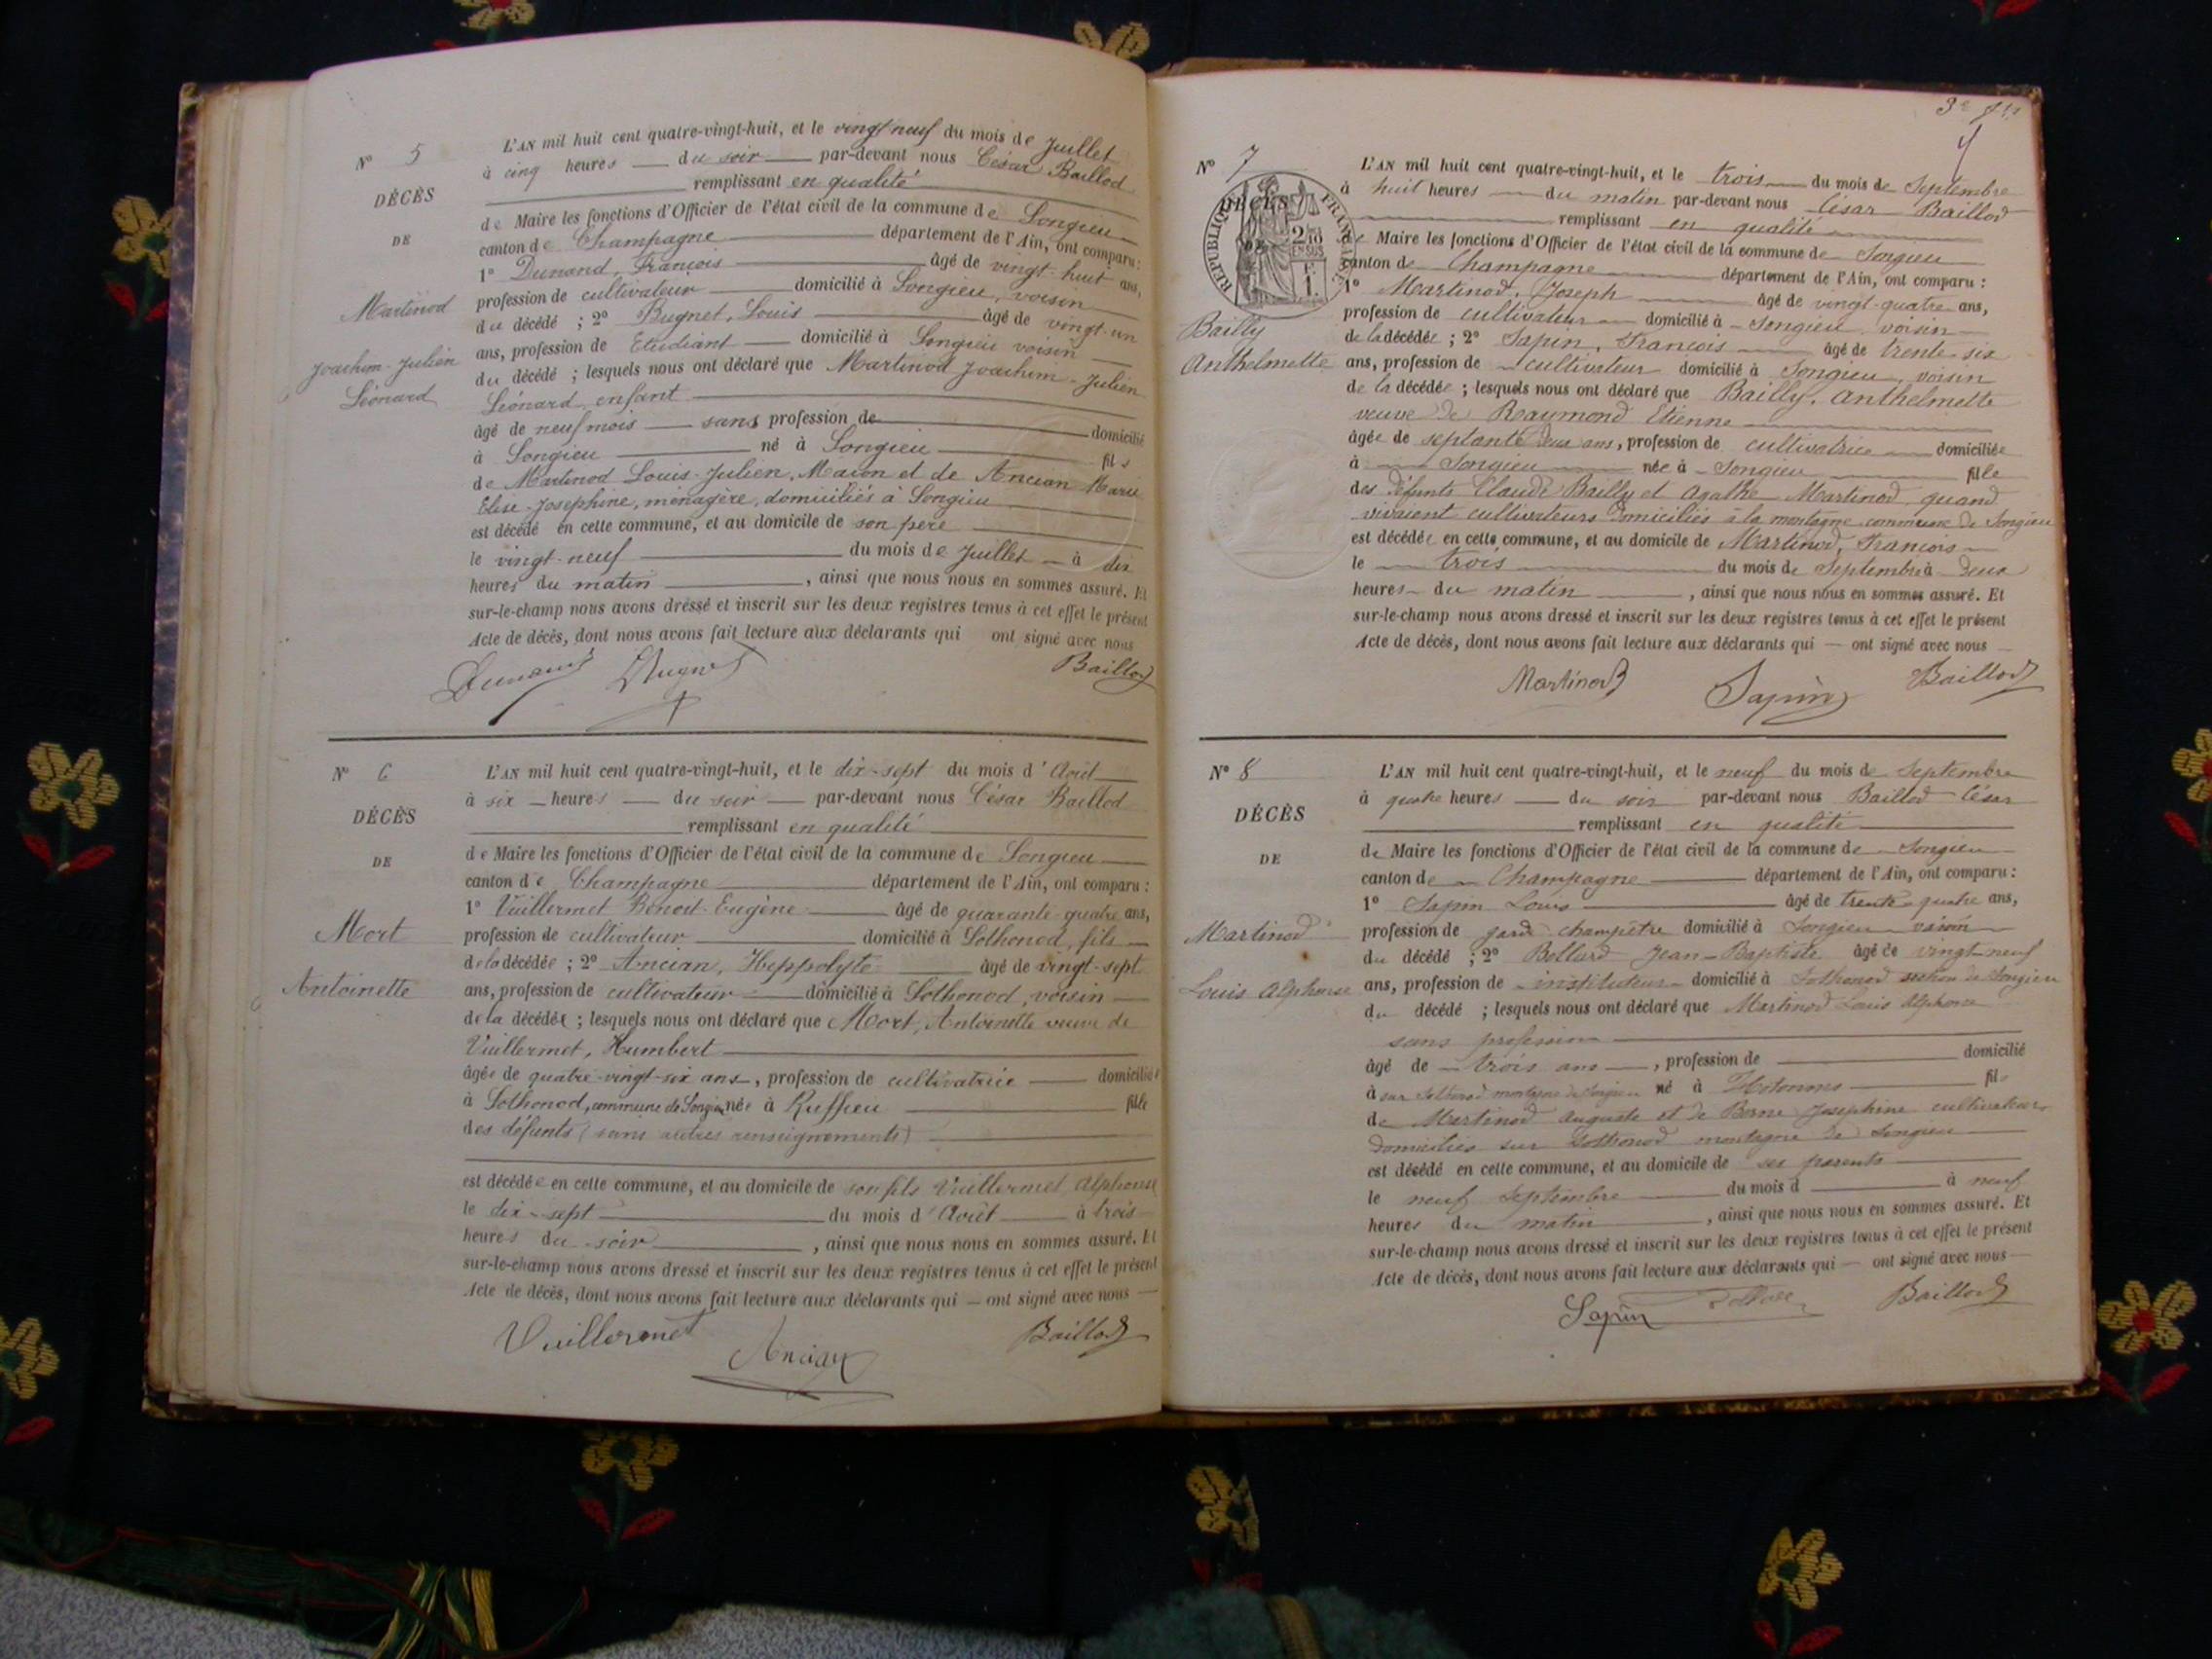 N° 5
DÉCÈS
DE
Martinod
Joachim-Julien
Léonard
L'AN mil huit cent quatre-vingt-huit, et le vingt neuf du mois de Juillet
à cinq heures du soir par-devant nous César Baillod
remplissant en qualité
de Maire les fonctions d'Officier de l'état civil de la commune de Songieu
canton de Champagne département de l'Ain, ont comparu :
1° Dunand, François âgé de vingt-huit ans,
profession de cultivateur domicilié à Songieu, voisin
du décédé ; 2° Bugnet, Louis âgé de vingt-un
ans, profession de Etudiant domicilié à Songieu voisin
du décédé ; lesquels nous ont déclaré que Martinod Joachim-Julien
Léonard, enfant
âgé de neuf mois sans profession de domicilié
à Songieu né à Songieu fils
de Martinod Louis-Julien, Maçon et de Ancian Marie
Elise-Josephine, menagère, domiciliés à Songieu
est décédé en cette commune, et au domicile de son père
le vingt-neuf du mois de Juillet à dix
heures du matin , ainsi que nous nous en sommes assuré. Et
sur-le-champ nous avons dressé et inscrit sur les deux registres tenus à cet effet le présent
Acte de décès, dont nous avons fait lecture aux déclarants qui ont signé avec nous
Dunand Bugnet Baillod
N° 6
DÉCÈS
DE
Mort
Antoinette
L'AN mil huit cent quatre-vingt-huit, et le dix-sept du mois d'Août
à six heures du soir par-devant nous César Baillod
remplissant en qualité
de Maire les fonctions d'Officier de l'état civil de la commune de Songieu
canton de Champagne département de l'Ain, ont comparu :
1° Vuillermet Benoit-Eugène âgé de quarante-quatre ans,
profession de cultivateur domicilié à Sothonod, fils
de la décédée ; 2° Ancian, Hyppolyte âgé de vingt-sept
ans, profession de cultivateur domicilié à Sothonod, voisin
de la décédée ; lesquels nous ont déclaré que Mort, Antoinette veuve de
Vuillermet, Humbert
âgée de quatre-vingt-six ans, profession de cultivatrice domiciliée
à Sothonod, commune de Songieu née à Ruffieu fille
des défunts (sans autres renseignements)
est décédée en cette commune, et au domicile de son fils Vuillermet Alphonse
le dix-sept du mois d'Août à trois
heures du soir , ainsi que nous nous en sommes assuré. Et
sur-le-champ nous avons dressé et inscrit sur les deux registres tenus à cet effet le présent
Acte de décès, dont nous avons fait lecture aux déclarants qui ont signé avec nous
Vuillermet Ancian Baillod
N° 7
DÉCÈS
RÉPUBLIQUE FRANÇAISE
Bailly
Anthelmette
L'AN mil huit cent quatre-vingt-huit, et le trois du mois de Septembre
à huit heures du matin par-devant nous César Baillod
remplissant en qualité
de Maire les fonctions d'Officier de l'état civil de la commune de Songieu
canton de Champagne département de l'Ain, ont comparu :
1° Martinod, Joseph âgé de vingt-quatre ans,
profession de cultivateur domicilié à Songieu voisin
de la décédée ; 2° Sapin, François âgé de trente-six
ans, profession de cultivateur domicilié à Songieu, voisin
de la décédée ; lesquels nous ont déclaré que Bailly, Anthelmette
veuve de Raymond Etienne
âgée de septante deux ans, profession de cultivatrice domiciliée
à Songieu née à Songieu fille
des défunts Claude Bailly et Agathe Martinod, quand
vivaient cultivateurs domiciliés à la montagne commune de Songieu
est décédée en cette commune, et au domicile de Martinod, François
le trois du mois de Septembre à deux
heures du matin , ainsi que nous nous en sommes assuré. Et
sur-le-champ nous avons dressé et inscrit sur les deux registres tenus à cet effet le présent
Acte de décès, dont nous avons fait lecture aux déclarants qui ont signé avec nous
Martinod Sapin Baillod
N° 8
DÉCÈS
DE
Martinod
Louis Alphonse
L'AN mil huit cent quatre-vingt-huit, et le neuf du mois de Septembre
à quatre heures du soir par-devant nous Baillod César
remplissant en qualité
de Maire les fonctions d'Officier de l'état civil de la commune de Songieu
canton de Champagne département de l'Ain, ont comparu :
1° Sapin Louis âgé de trente-quatre ans,
profession de garde champêtre domicilié à Songieu voisin
du décédé ; 2° Bollard Jean-Baptiste âgé de vingt-neuf
ans, profession de instituteur domicilié à Sothonod section de Songieu
du décédé ; lesquels nous ont déclaré que Martinod Louis Alphonse
sans profession
âgé de trois ans , profession de domicilié
à sur Sothonod montagne de Songieu né à Hotonnes fils
de Martinod Auguste et de Berne Josephine cultivateurs
domiciliés sur Sothonod montagne de Songieu
est décédé en cette commune, et au domicile de ses parents
le neuf Septembre du mois d à neuf
heures du matin , ainsi que nous nous en sommes assuré. Et
sur-le-champ nous avons dressé et inscrit sur les deux registres tenus à cet effet le présent
Acte de décès, dont nous avons fait lecture aux déclarants qui ont signé avec nous
Sapin Baillod